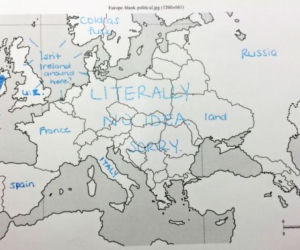 Europe blank political.jpg (1280x981)
COLD AS
FUCK
Russia
Isn't
Ireland
around
here?
U.K
LITERALLY
NO IDEA
SORRY.
land
France
ITALY
Spain